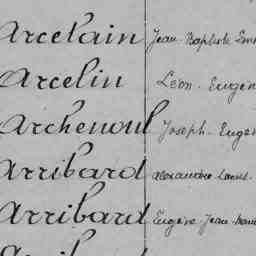 Arcelain Jean Baptiste
Arcelin Léon Eugèn
Archenoul Joseph Eugen
Arribard Alexandre Louis
Arribard Eugène Jean